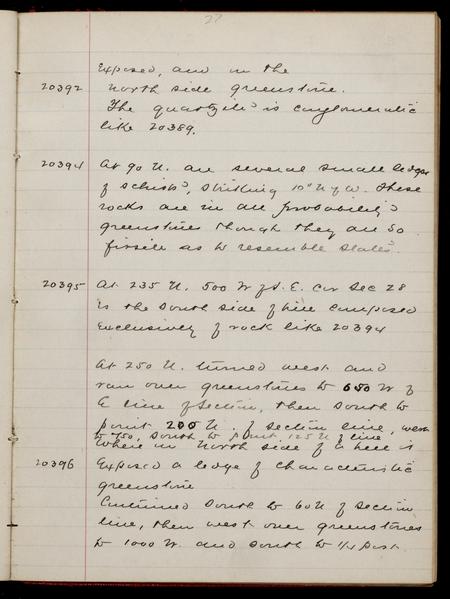 27
Exposed, and on the
20392 North side greenstone.
The quartzite is conglomeratic
like 20389.
20394 At 90 N. are several small ledges
of schists, striking 10° N of W. These
rocks are in all probability
greenstones though they are so
fissile as to resemble slates.
20395 At 235 N. 500 W of S. E. cor Sec 28
is the South side of hill composed
exclusively of rock like 20394
At 250 N. turned west and
ran over greenstones to 650 W of
E line of Section, then South to
point 200 N. of section line, west
to 750, South to point 125 N of line
Where on North side of a hill is
20396 Exposed a ledge of characteristic
greenstone
Continued South to 60 N of Section
line, then west over greenstones
to 1000 W. and South to 1/4 post.